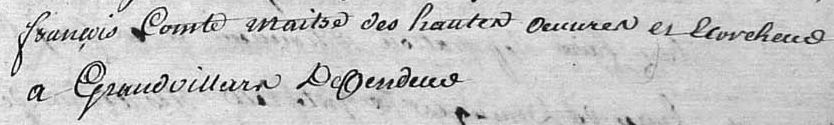 françois Comte maitre des hautes oeuvres et Ecorcheur
a Grandvillars Defendeur